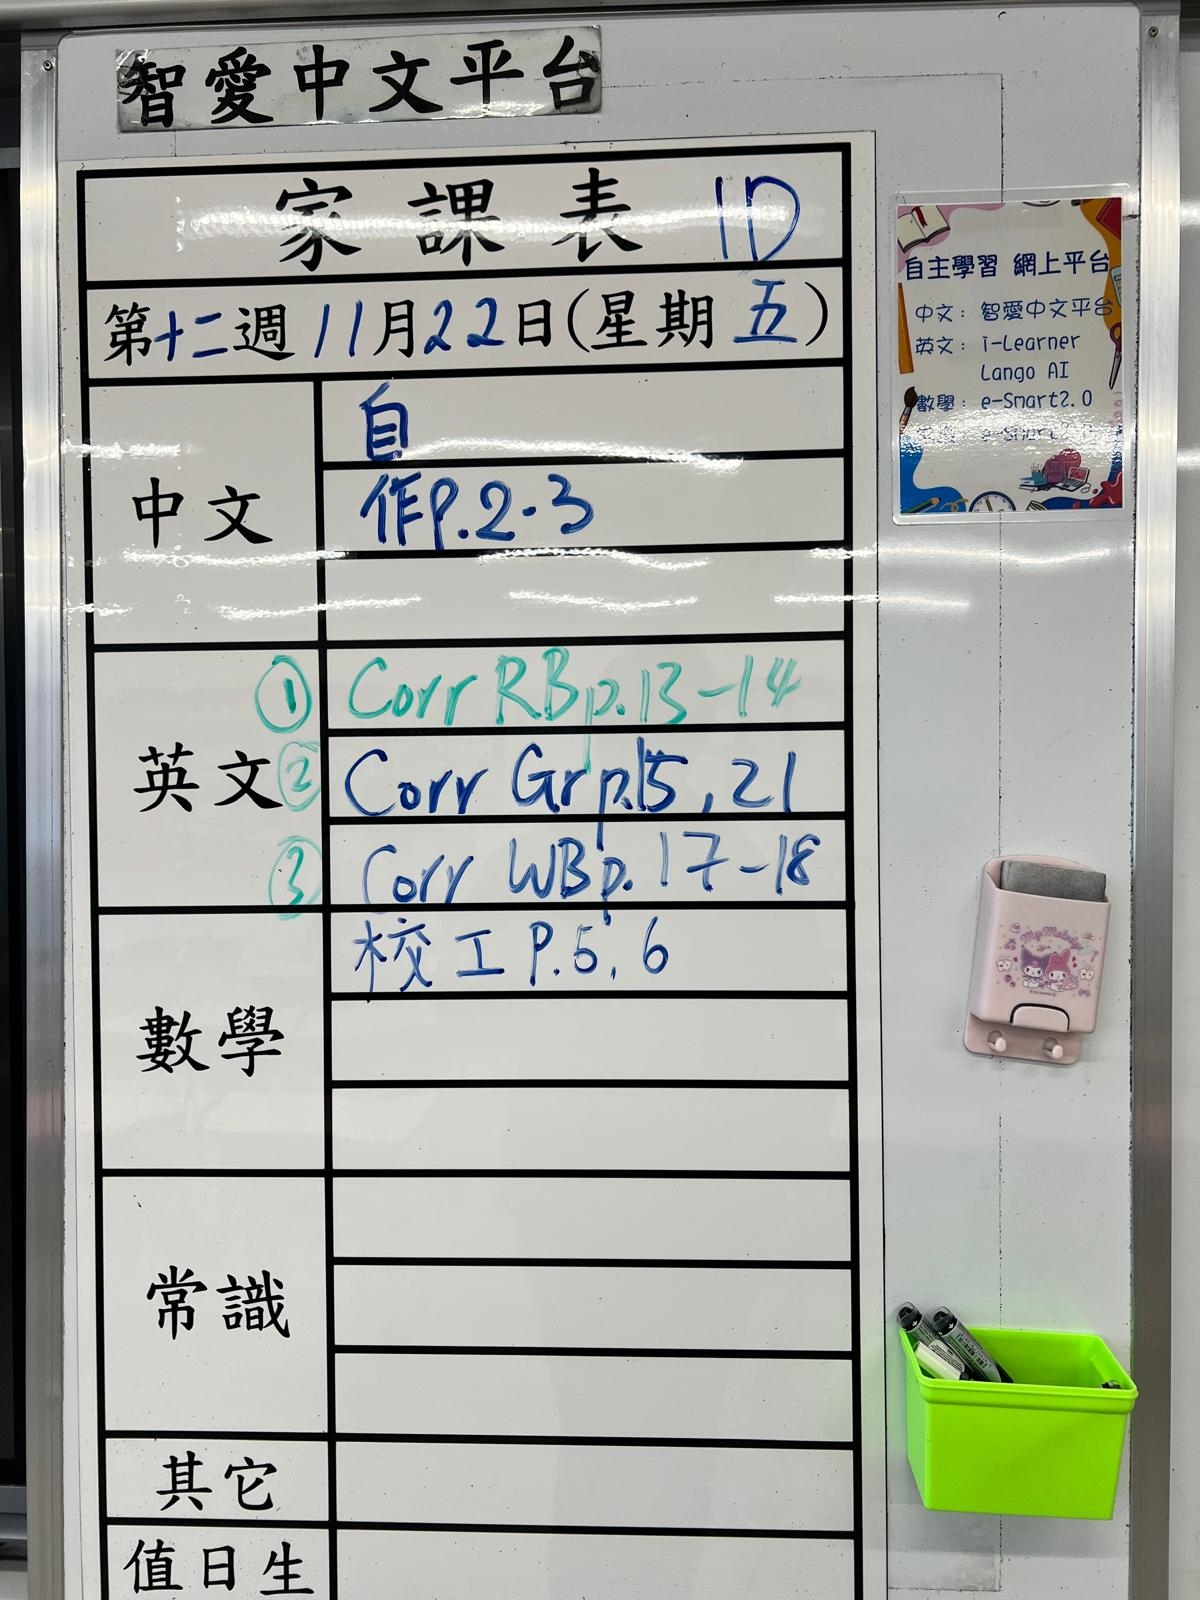 智愛中文平台
家課表 1D
第十二週 11月22日(星期五)
中文
自
作P.2-3
英文
① Corr RB p.13-14
② Corr Gr p.15, 21
③ Corr WB p.17-18
數學
校工 P.5, 6
常識
其它
值日生
自主學習 網上平台
中文：智愛中文平台
英文：i-Learner
Lango AI
數學：e-Smart2.0
My Melody